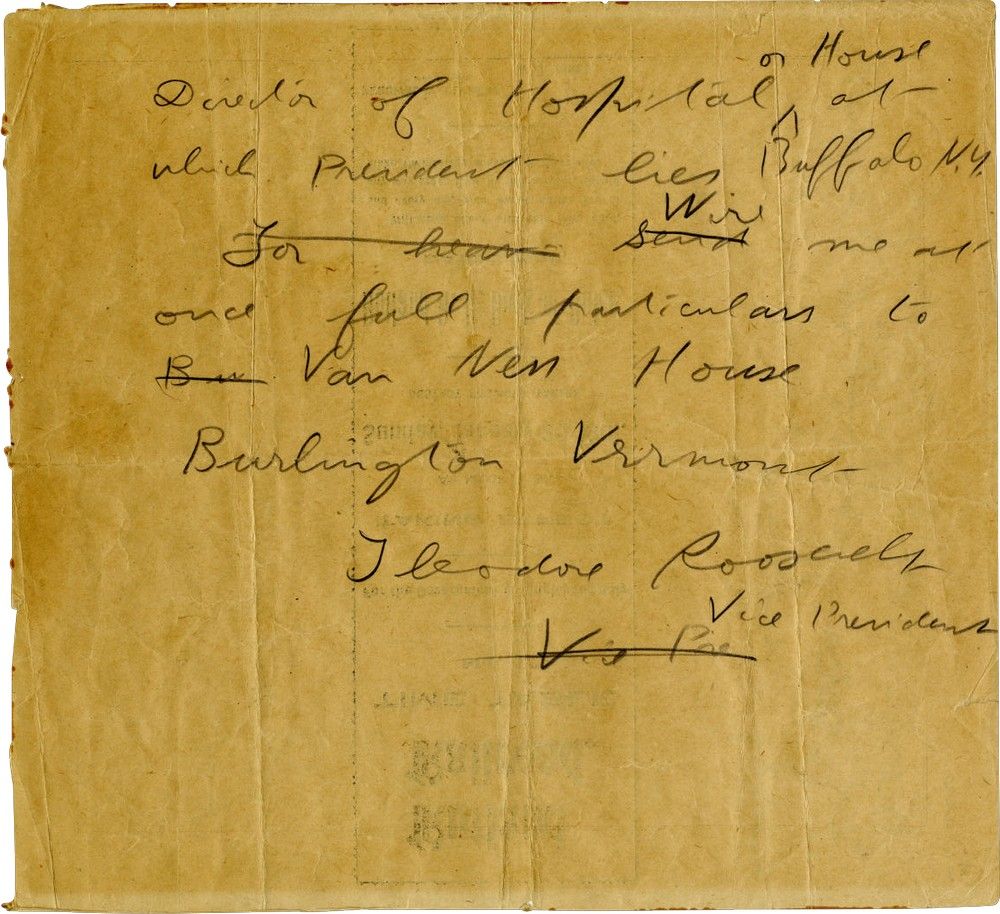 or House
Director of Hospital ^ at
which President lies Buffalo N.Y.
Wire
For hear send me at
once full particulars to
Bu Van Ness House
Burlington Verrmont
Theodore Roosevelt
Vice President
Vice Pre